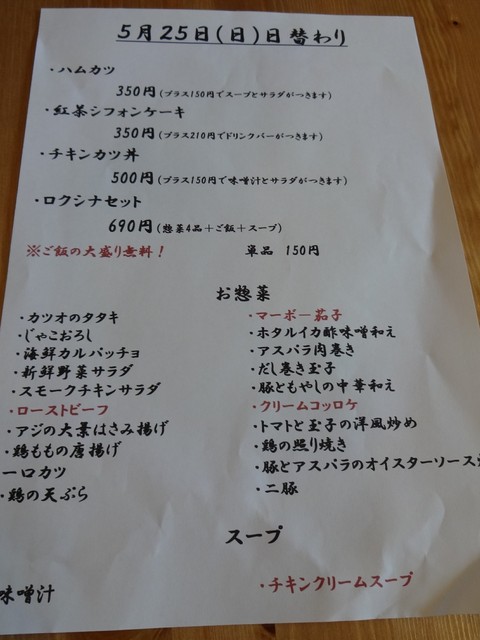 5月25日(日)日替わり
・ハムカツ
350円(プラス150円でスープとサラダがつきます)
・紅茶シフォンケーキ
350円(プラス210円でドリンクバーがつきます)
・チキンカツ丼
500円(プラス150円で味噌汁とサラダがつきます)
・ロクシナセット
690円(惣菜4品+ご飯+スープ)
※ご飯の大盛り無料! 単品 150円
お惣菜
・カツオのタタキ
・じゃこおろし
・海鮮カルパッチョ
・新鮮野菜サラダ
・スモークチキンサラダ
・ローストビーフ
・アジの大葉はさみ揚げ
・鶏ももの唐揚げ
一口カツ
・鶏の天ぷら
・マーボー茄子
・ホタルイカ酢味噌和え
・アスパラ肉巻き
・だし巻き玉子
・豚ともやしの中華和え
・クリームコッロケ
・トマトと玉子の洋風炒め
・鶏の照り焼き
・豚とアスパラのオイスターソース
・二豚
スープ
味噌汁
・チキンクリームスープ